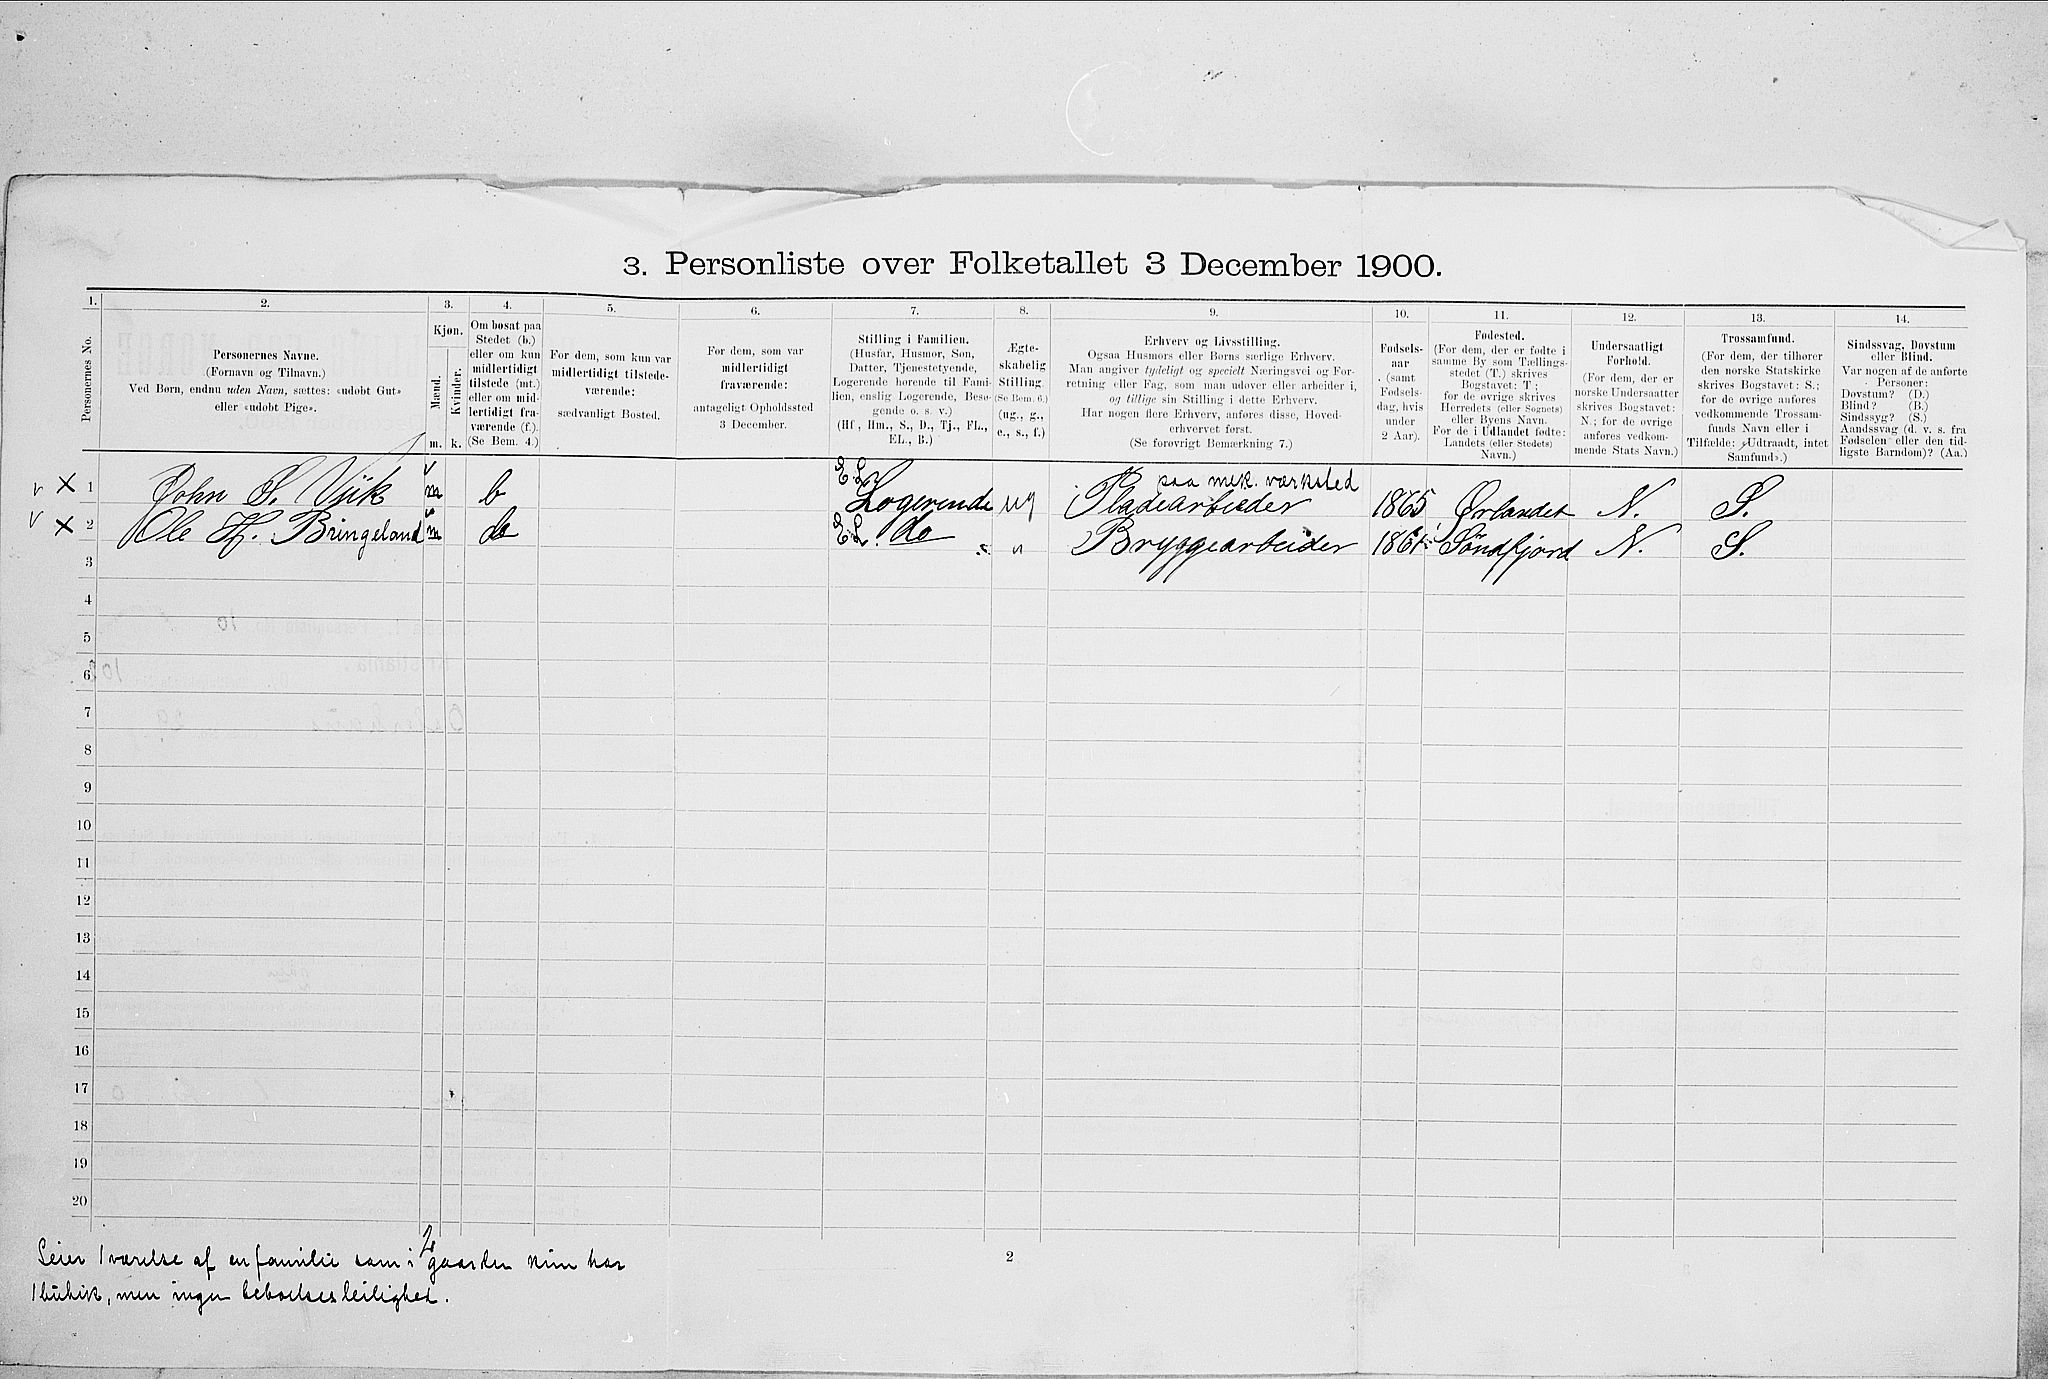 3. Personliste over Folketallet 3 December 1900.
1.
Personernes No.
2.
Personernes Navne.
(Fornavn og Tilnavn.)
Ved Børn, endnu uden Navn, sættes: «udøbt Gut»
eller «udøbt Pige».
3.
Kjøn.
Mænd.
Kvinder.
m. k.
4.
Om bosat paa
Stedet (b.)
eller om kun
midlertidigt
tilstede (mt.)
eller om mid-
lertidigt fra-
værende (f.).
(Se Bem. 4.)
5.
For dem, som kun var
midlertidigt tilstede-
værende:
sædvanligt Bosted.
6.
For dem, som var
midlertidigt
fraværende:
antageligt Opholdssted
3 December.
7.
Stilling i Familien.
(Husfar, Husmor, Søn,
Datter, Tjenestetyende,
Logerende hørende til Fami-
lien, enslig Logerende, Besø-
gende o. s. v.)
(Hf., Hm., S., D., Tj., FL.,
EL., B.)
8.
Ægte-
skabelig
Stilling.
(Se Bem. 6.)
(ug., g.,
e., s., f.)
9.
Erhverv og Livsstilling.
Ogsaa Husmors eller Børns særlige Erhverv.
Man angiver tydeligt og specielt Næringsvei og For-
retning eller Fag, som man udøver eller arbeider i,
og tillige sin Stilling i dette Erhverv.
Har nogen flere Erhverv, anføres disse, Hoved-
erhvervet først.
(Se forøvrigt Bemærkning 7.)
10.
Fødsels-
aar
(samt
Fødsels-
dag, hvis
under
2 Aar).
11.
Fødested.
(For dem, der er fødte i
samme By som Tællings-
stedet (T.) skrives
Bogstavet: T;
for de øvrige skrives
Herredets (eller Sognets)
eller Byens Navn.
For de i Udlandet fødte:
Landets (eller Stedets)
Navn.)
12.
Undersaatligt
Forhold.
(For dem, der er
norske Undersaatter
skrives Bogstavet:
N.; for de øvrige
anføres vedkom-
mende Stats Navn.)
13.
Trossamfund.
(For dem, der tilhører
den norske Statskirke
skrives Bogstavet: S.;
for de øvrige anføres
vedkommende Trossam-
funds Navn eller i
Tilfælde: «Udtraadt, intet
Samfund».)
14.
Sindssvag, Døvstum
eller Blind.
Var nogen af de anførte
Personer:
Døvstum? (D.)
Blind? (B.)
Sindssyg? (S.)
Aandssvag (d. v. s. fra
Fødselen eller den tid-
ligste Barndom)? (Aa.)
v X 1 John S. Viik m b E.L. Logerende ug Pladearbeider paa mek. værksted 1865 Ørlandet N. S.
v X 2 Ole H. Bringeland m do E.L. do " Bryggearbeider 1861 Søndfjord N. S.
3
4
5
6
7
8
9
10
11
12
13
14
15
16
17
18
19
20
Leier 1 værelse af en familie som i gaarden kun har
1 butik, men ingen beboelsesleilighed.
2